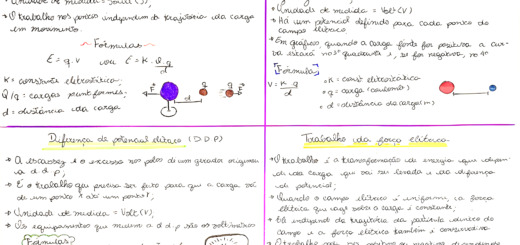 • Unidade de medida = Joule (J);
• O trabalho nos pontos independem da trajetória da carga
em movimento.
Fórmulas
E = q.V ou E = K.Q.q
d
K = constante eletrostática;
Q/q = cargas puntiformes;
d = distância da carga
F Q q F
d
• Unidade de medida = Volt (V)
• Há um potencial definido para cada ponto do
campo elétrico
• Em gráficos quando a carga fonte for positiva a cur-
va estará no 1º quadrante e, se for negativa, no 4º
Fórmula
V = K.q
d
• K = const. eletrostática
• q = carga (coulomb)
• d = distância da carga (m)
Diferença de potencial elétrico (DDP)
• A escassez e o excesso nos polos de um gerador originam
a d d p;
• É o trabalho que precisa ser feito para que a carga vá
de um ponto x até um ponto y;
• Unidade de medida = Volt (V);
• Os equipamentos que medem a d d p são os voltímetros
Fórmulas
Trabalho da força elétrica
• O trabalho é a transformação de energia que depen-
de da carga que vai ser levada e da diferença
de potencial;
• Quando o campo elétrico é uniforme, a força
elétrica que age sobre a carga é constante;
• Ele independe da trajetória da partícula dentro do
campo e a força elétrica também é conservativa
• O trabalho pode ser positivo ou negativo dependendo